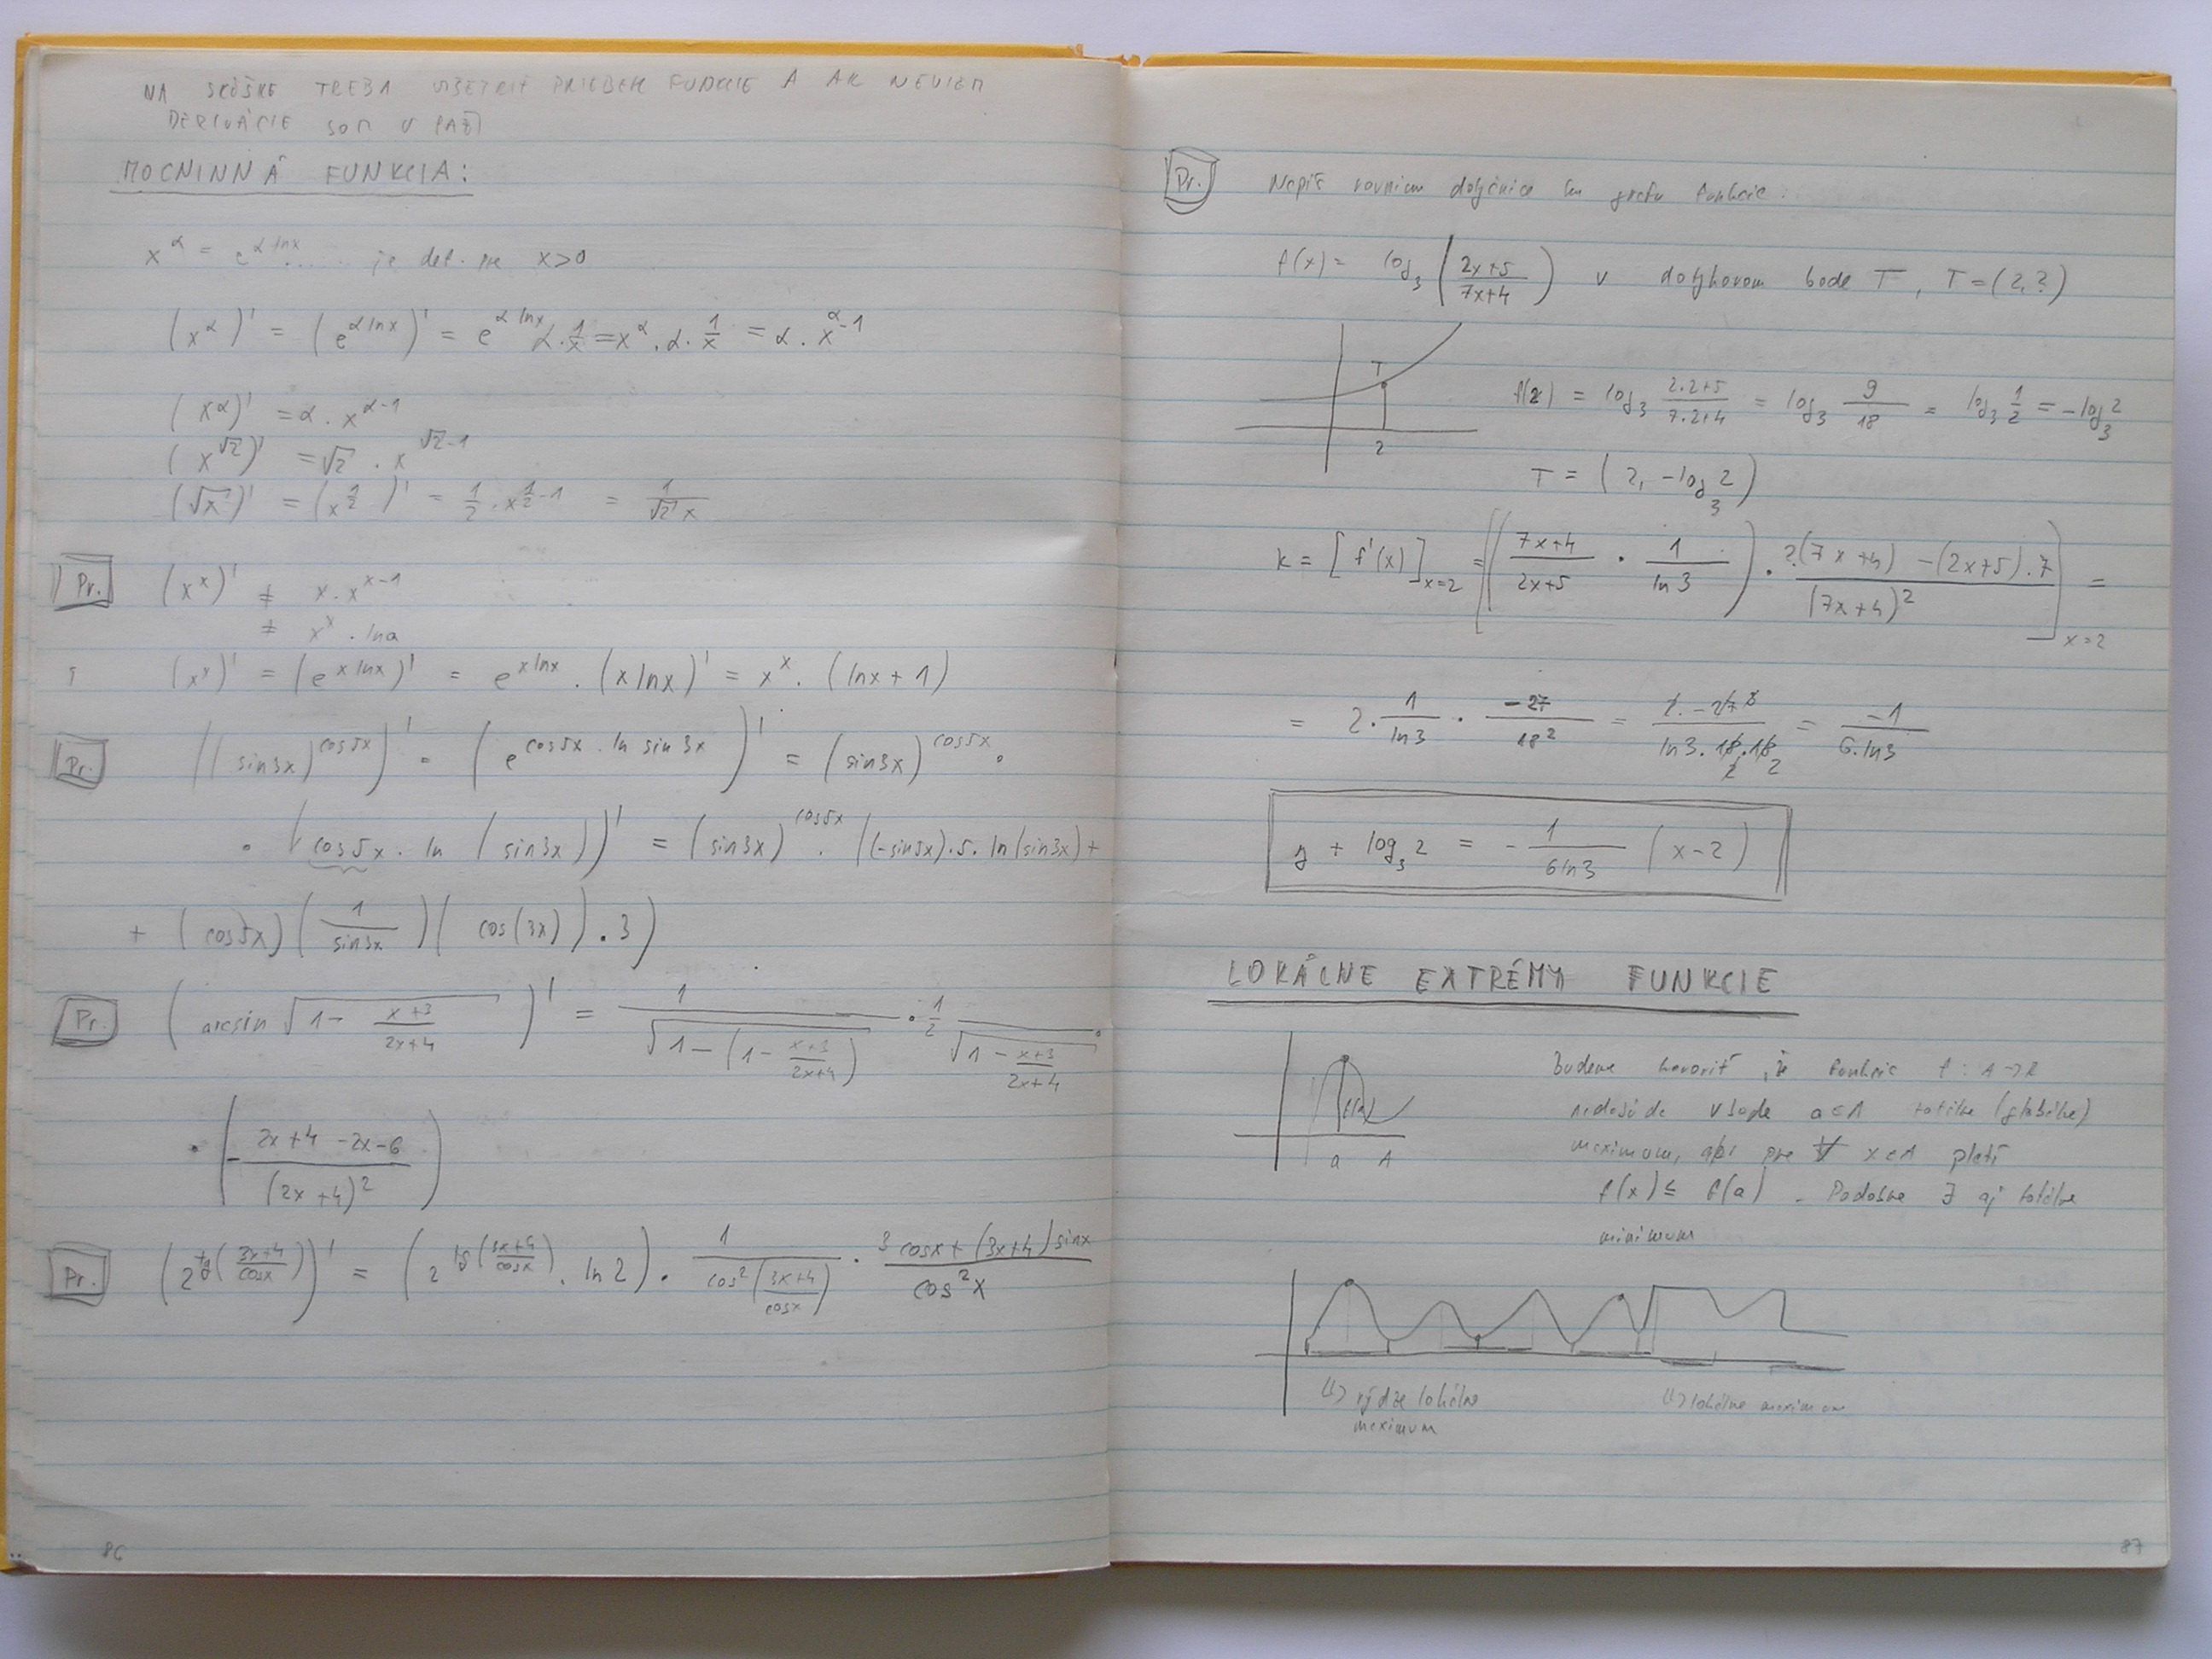 NA SKÚŠKE TREBA VYŠETRIŤ PRIEBEH FUNKCIE A AK NEVIEM
DERIVÁCIE SOM V
MOCNINNÁ FUNKCIA:
x^α = e^(α lnx) ...... je def. pre x>0
(x^α)' = (e^(α lnx))' = e^(α lnx) α · 1/x = x^α · α · 1/x = α · x^(α-1)
(x^α)' = α · x^(α-1)
(x^√2)' = √2 · x^(√2-1)
(√x)' = (x^(1/2))' = 1/2 · x^(1/2-1) = 1/(√2 x)
Pr. (x^x)' ≠ x · x^(x-1)
≠ x^x · lna
(x^x)' = (e^(x lnx))' = e^(x lnx) · (x lnx)' = x^x · (lnx + 1)
Pr. ((sin3x)^(cos5x))' = (e^(cos5x · ln sin3x))' = (sin3x)^(cos5x) ·
· (cos5x · ln (sin3x))' = (sin3x)^(cos5x) · ((-sin5x)·5·ln(sin3x) +
+ (cos5x)(1/(sin3x))(cos(3x))·3)
Pr. (arcsin √(1- (x+3)/(2x+4)))' = 1/√(1-(1- (x+3)/(2x+4))) · 1/2 1/√(1- (x+3)/(2x+4)) ·
· (- (2x+4 -2x-6)/(2x+4)²)
Pr. (2^(tg((3x+4)/cosx)))' = (2^(tg((3x+4)/cosx)) · ln2) · 1/(cos²((3x+4)/cosx)) · (3cosx+(3x+4)sinx)/(cos²x)
86
Pr. Napíš rovnicu dotyčnice ku grafu funkcie:
f(x) = log₃((2x+5)/(7x+4)) v dotykovom bode T, T=(2,?)
T
2
f(2) = log₃ (2·2+5)/(7·2+4) = log₃ 9/18 = log₃ 1/2 = -log₃ 2
T = (2, -log₃ 2)
k = [f'(x)]_(x=2) = [((7x+4)/(2x+5) · 1/(ln3)) · (2(7x+4) - (2x+5)·7)/((7x+4)²)]_(x=2) =
= 2 · 1/(ln3) · (-27)/(18²) = (2·-27 3)/(ln3·18·18 2 2) = -1/(6·ln3)
y + log₃2 = - 1/(6ln3) (x-2)
LOKÁLNE EXTRÉMY FUNKCIE
f(a)
a A
Budeme hovoriť, že funkcia f: A→R
nadobúda v bode a∈A totálne (globálne)
maximum, ak pre ∀ x∈A platí
f(x) ≤ f(a). Podobne ∃ aj totálne
minimum
↳ rýdze lokálne
maximum
↳ lokálne maximum
87